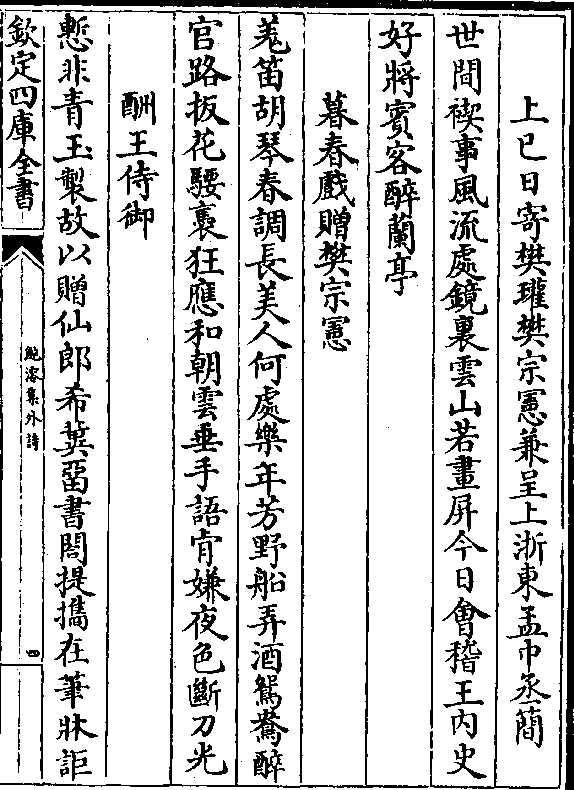 上巳日寄樊瓘樊宗憲兼呈上浙東孟中丞簡
世間禊事風流處鏡裏雲山若畫屏今日會稽王內史
好將賓客醉蘭亭
暮春戲贈樊宗憲
羗笛胡琴春調長美人何處樂年芳野船弄酒鴛鴦醉
官路扳花騕褭狂應和朝雲垂手語肯嫌夜色斷刀光
酬王侍御
慙非青玉製故以贈仙郎希冀留書閣提攜在筆牀詎
欽定四庫全書
鮑溶集外詩
四